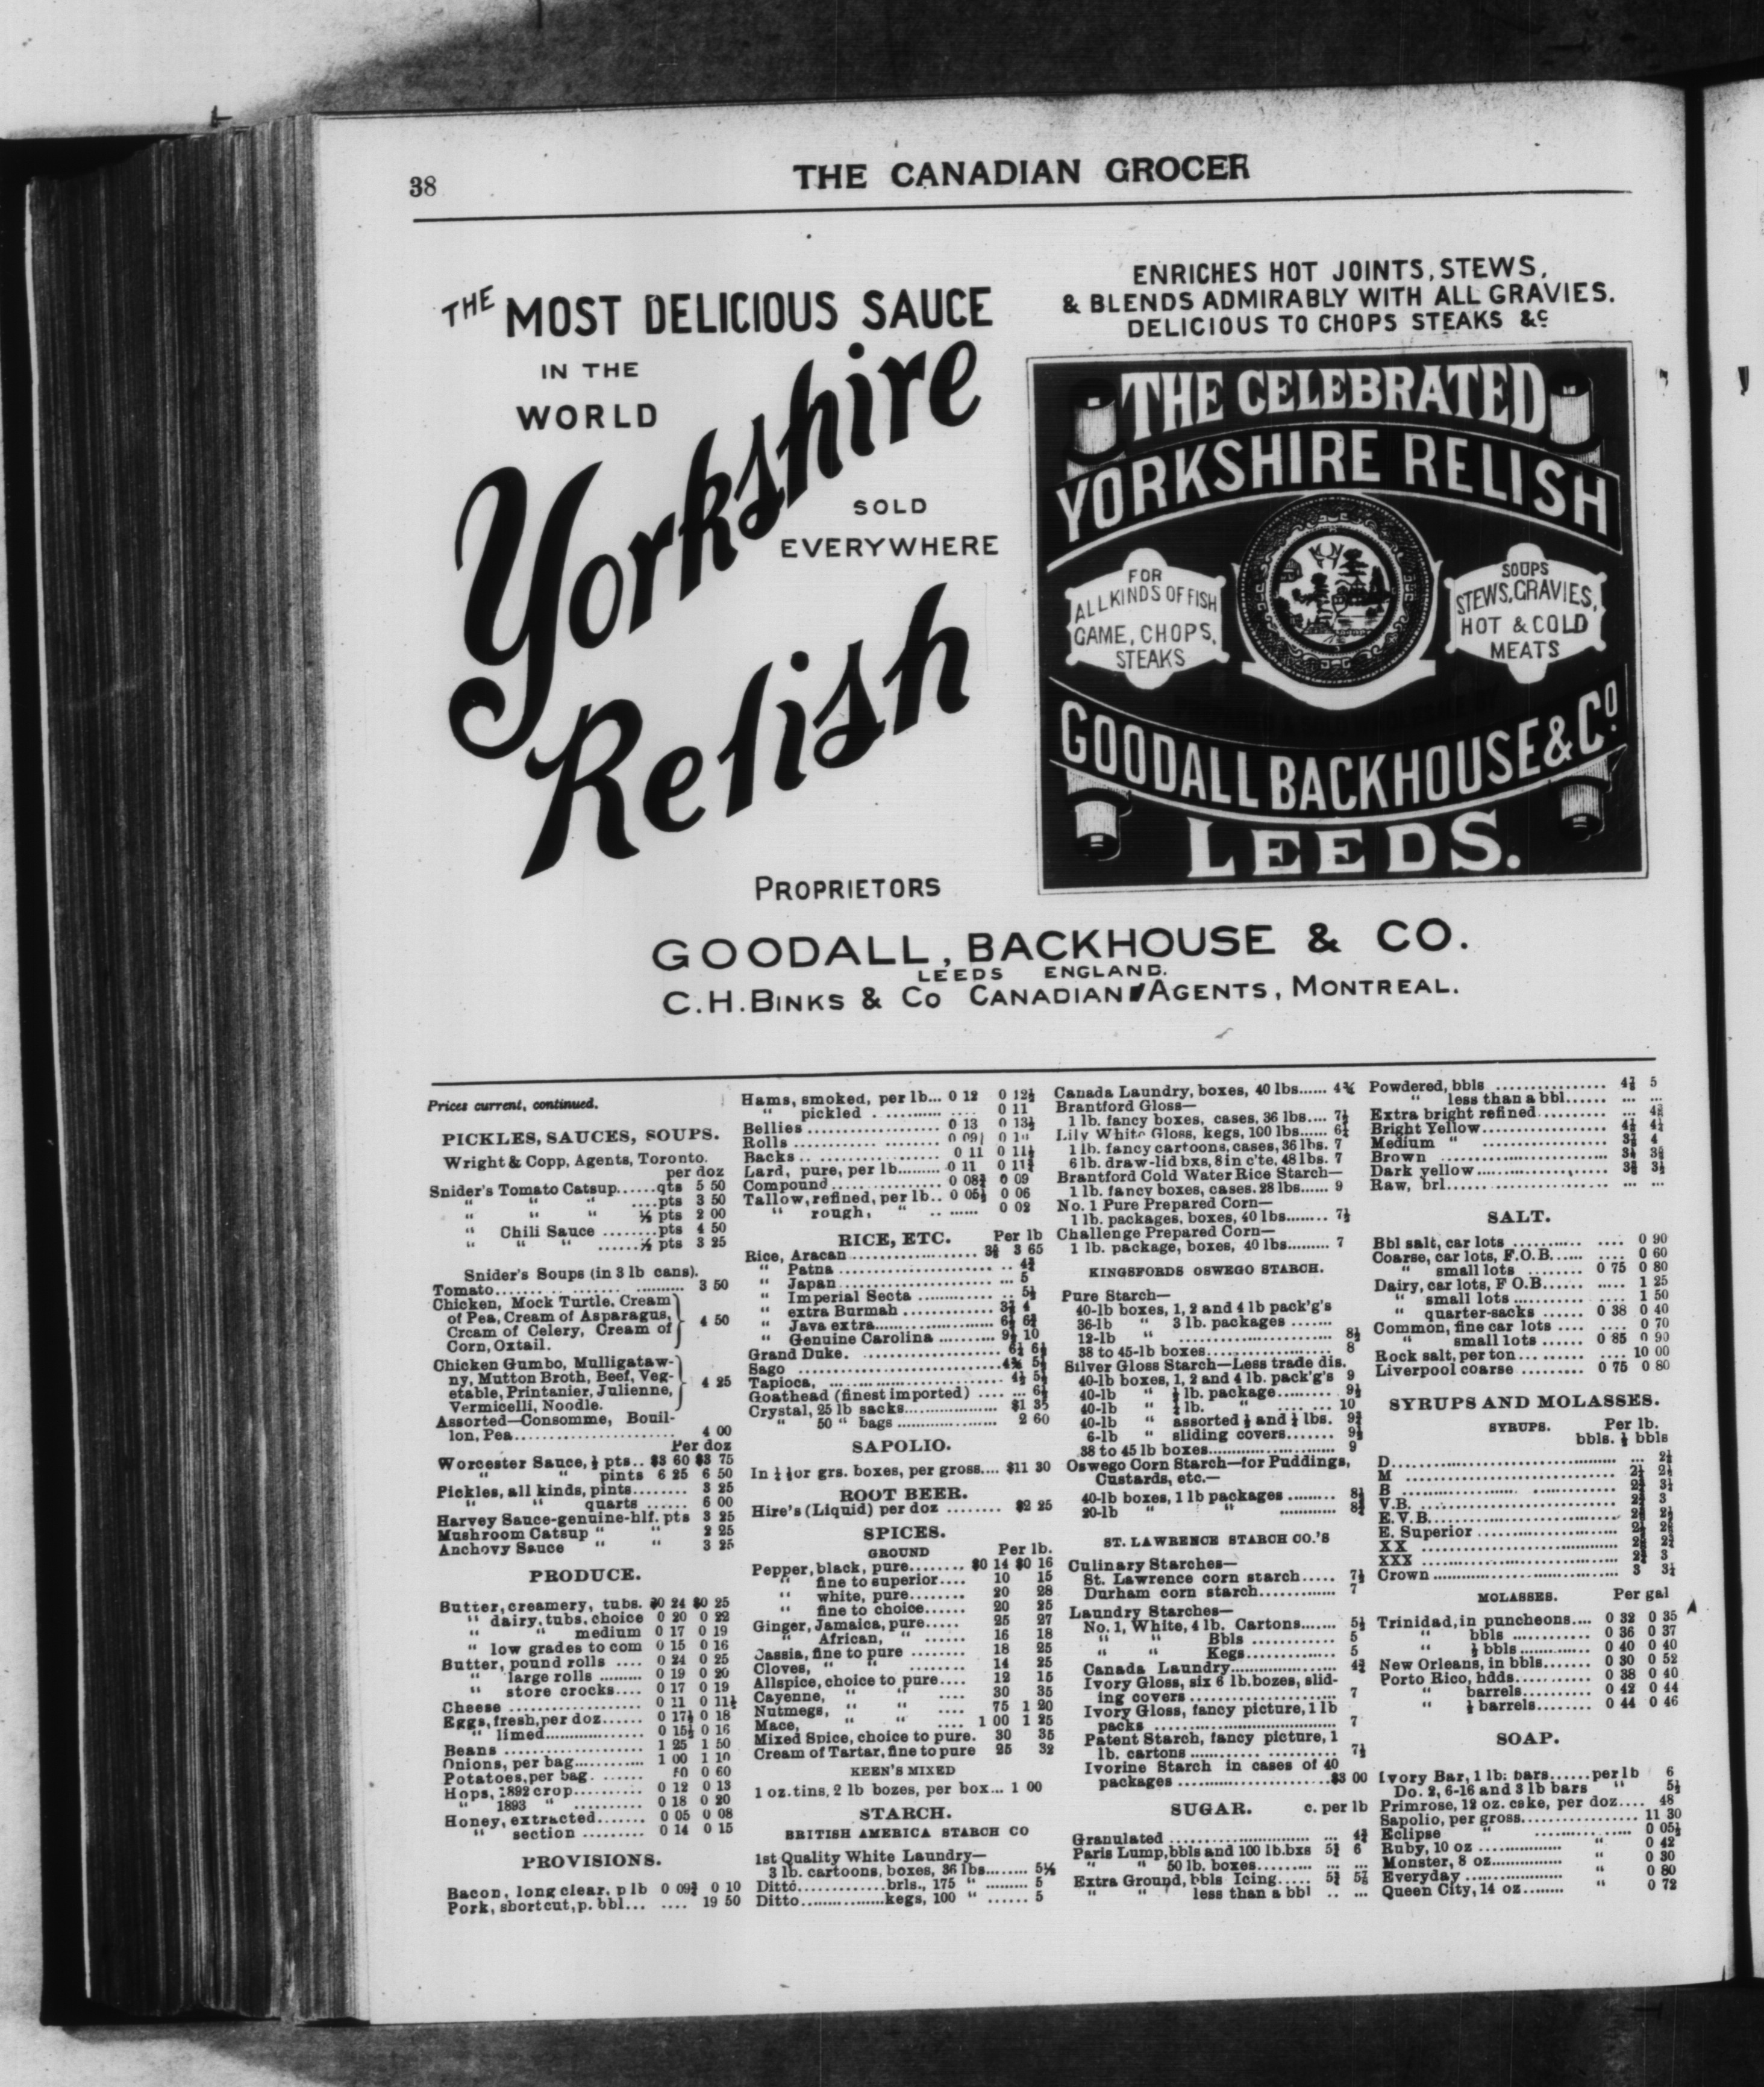 38
THE CANADIAN GROCER
THE MOST DELICIOUS SAUCE
IN THE
WORLD
Yorkshire
SOLD
EVERYWHERE
Relish
ENRICHES HOT JOINTS, STEWS,
& BLENDS ADMIRABLY WITH ALL GRAVIES.
DELICIOUS TO CHOPS STEAKS &c
THE CELEBRATED
YORKSHIRE RELISH
FOR
ALL KINDS OF FISH
GAME, CHOPS,
STEAKS
SOUPS
STEWS, GRAVIES,
HOT & COLD
MEATS
GOODALL BACKHOUSE & Co.
LEEDS.
PROPRIETORS
GOODALL, BACKHOUSE & CO.
LEEDS ENGLAND.
C.H. BINKS & Co CANADIAN AGENTS, MONTREAL.
Prices current, continued.
PICKLES, SAUCES, SOUPS.
Wright & Copp, Agents, Toronto.
per doz
Snider's Tomato Catsup......qts 5 50
" " " ....pts 3 50
" " " ½ pts 2 00
" Chili Sauce ........pts 4 50
" " " ......½ pts 3 25
Snider's Soups (in 3 lb cans).
Tomato.................. 3 50
Chicken, Mock Turtle, Cream
of Pea, Cream of Asparagus,
Cream of Celery, Cream of
Corn, Oxtail. 4 50
Chicken Gumbo, Mulligataw-
ny, Mutton Broth, Beef, Veg-
etable, Printanier, Julienne,
Vermicelli, Noodle. 4 25
Assorted—Consomme, Bouil-
lon, Pea........................ 4 00
Per doz
Worcester Sauce, ½ pts.. $3 60 $3 75
" " pints 6 25 6 50
Pickles, all kinds, pints........ 3 25
" " quarts ...... 6 00
Harvey Sauce-genuine-hlf. pts 3 25
Mushroom Catsup " " 2 25
Anchovy Sauce " " 3 25
PRODUCE.
Butter, creamery, tubs. $0 24 $0 25
" dairy, tubs, choice 0 20 0 22
" " medium 0 17 0 19
" low grades to com 0 15 0 16
Butter, pound rolls .... 0 24 0 25
" large rolls .......... 0 19 0 20
" store crocks.... 0 17 0 19
Cheese ........................ 0 11 0 11½
Eggs, fresh, per doz...... 0 17½ 0 18
" limed.................. 0 15½ 0 16
Beans ..................... 1 25 1 50
Onions, per bag............ 1 00 1 10
Potatoes, per bag. ....... 0 60
Hops, 1892 crop.......... 0 12 0 13
" 1893 " .......... 0 18 0 20
Honey, extracted....... 0 05 0 08
" section ......... 0 14 0 15
PROVISIONS.
Bacon, long clear, p lb 0 09¾ 0 10
Pork, shortcut, p. bbl... .... 19 50
Hams, smoked, per lb... 0 12 0 12½
" pickled . .......... .... 0 11
Bellies .................. 0 13 0 13½
Rolls .................... 0 09
Backs .. .................. 0 11 0 11½
Lard, pure, per lb......... 0 11 0 11¾
Compound ................ 0 08¾ 0 09
Tallow, refined, per lb.. 0 05½ 0 06
" rough, " .. ...... 0 02
RICE, ETC. Per lb
Rice, Aracan .................. 3 65
" Patna ........................ .. 4¾
" Japan........................ ... 5
" Imperial Seeta ............ .. 5½
" extra Burmah ............ 3¾ 4
" Java extra................. 6½ 6¾
" Genuine Carolina .......... 9½ 10
Grand Duke. ..................... 6½
Sago ...........................
Tapioca, ........................
Goathead (finest imported) .... ... 6½
Crystal, 25 lb sacks.................. $1 35
" 50 " bags .................... 2 60
SAPOLIO.
In ¼ ½ or grs. boxes, per gross.... $11 30
ROOT BEER.
Hire's (Liquid) per doz ........ $2 25
SPICES.
GROUND Per lb.
Pepper, black, pure........ $0 14 $0 16
" fine to superior.... 10 15
" white, pure........ 20 28
" fine to choice...... 20 25
Ginger, Jamaica, pure..... 25 27
" African, " ...... 16 18
Cassia, fine to pure ........ 18 25
Cloves, " " ........ 14 25
Allspice, choice to pure.... 12 15
Cayenne, " " .... 30 35
Nutmegs, " " .... 75 1 20
Mace, " " .... 1 00 1 25
Mixed Spice, choice to pure. 30 35
Cream of Tartar, fine to pure 25 32
KEEN'S MIXED
1 oz. tins, 2 lb bozes, per box... 1 00
STARCH.
BRITISH AMERICA STARCH CO
1st Quality White Laundry—
3 lb. cartoons, boxes, 36 lbs........ 5½
Ditto.............brls., 175 " ......... 5
Ditto...............kegs, 100 " ...... 5
Canada Laundry, boxes, 40 lbs...... 4¾
Brantford Gloss—
1 lb. fancy boxes, cases, 36 lbs.... 7½
Lily White Gloss, kegs, 100 lbs...... 6¾
1 lb. fancy cartoons, cases, 36 lbs. 7
6 lb. draw-lid bxs, 8 in c'te, 48 lbs. 7
Brantford Cold Water Rice Starch—
1 lb. fancy boxes, cases. 28 lbs...... 9
No. 1 Pure Prepared Corn—
1 lb. packages, boxes, 40 lbs........ 7½
Challenge Prepared Corn—
1 lb. package, boxes, 40 lbs......... 7
KINGSFORDS OSWEGO STARCH.
Pure Starch—
40-lb boxes, 1, 2 and 4 lb pack'g's
36-lb " 3 lb. packages .......
12-lb " ........................... 8½
38 to 45-lb boxes.................... 8
Silver Gloss Starch—Less trade dis.
40-lb boxes, 1, 2 and 4 lb. pack'g's 9
40-lb " ½ lb. package......... 9½
40-lb " ¼ lb. " .... ... 10
40-lb " assorted ½ and ¼ lbs. 9¾
6-lb " sliding covers....... 9½
38 to 45 lb boxes....................... 9
Oswego Corn Starch—for Puddings,
Custards, etc.—
40-lb boxes, 1 lb packages ......... 8¼
20-lb " " ............ 8¾
ST. LAWRENCE STARCH CO.'S
Culinary Starches—
St. Lawrence corn starch..... 7½
Durham corn starch............. 7
Laundry Starches—
No. 1, White, 4 lb. Cartons....... 5½
" " Bbls ............ 5
" " Kegs............. 5
Canada Laundry..................... 4¾
Ivory Gloss, six 6 lb. bozes, slid-
ing covers ....................... 7
Ivory Gloss, fancy picture, 1 lb
packs ................................ 7
Patent Starch, fancy picture, 1
lb. cartons ............ .......... 7½
Ivorine Starch in cases of 40
packages .............................$3 00
SUGAR. c. per lb
Granulated ........................... ... 4¾
Paris Lump, bbls and 100 lb. bxs 5¾ 6
" " 50 lb. boxes......... ... ...
Extra Ground, bbls Icing..... 5¾ 5⅞
" " less than a bbl .. ...
Powdered, bbls ................ 4⅞ 5
" less than a bbl...... ... ...
Extra bright refined.......... ...
Bright Yellow................. 4½
Medium " ................ 4
Brown ......................
Dark yellow...................
Raw, brl....................... ... ...
SALT.
Bbl salt, car lots .............. .... 0 90
Coarse, car lots, F.O.B...... .... 0 60
" small lots ........ 0 75 0 80
Dairy, car lots, F O.B...... ..... 1 25
" small lots .......... .... 1 50
" quarter-sacks ...... 0 38 0 40
Common, fine car lots .... .... 0 70
" small lots ...... 0 85 0 90
Rock salt, per ton ... ........ .... 10 00
Liverpool coarse ......... 0 75 0 80
SYRUPS AND MOLASSES.
SYRUPS. Per lb.
bbls. ½ bbls
D.................................... ...
M ....................................
B ....................................
V.B. ................................. 3
E.V.B................................
E. Superior ........................
XX ..................................
XXX ................................. 3
Crown ............................... 3
MOLASSES. Per gal
Trinidad, in puncheons.... 0 32 0 35
" bbls ............ 0 36 0 37
" ½ bbls ........... 0 40 0 40
New Orleans, in bbls....... 0 30 0 52
Porto Rico, hdds............ 0 38 0 40
" barrels.......... 0 42 0 44
" ½ barrels........ 0 44 0 46
SOAP.
Ivory Bar, 1 lb. bars......per lb 6
Do. 2, 6-16 and 3 lb bars " 5½
Primrose, 12 oz. cake, per doz.... 48
Sapolio, per gross.................. 11 30
Eclipse " ................ 0 05½
Ruby, 10 oz ............... " 0 42
Monster, 8 oz.............. " 0 30
Everyday .................. " 0 80
Queen City, 14 oz........ " 0 72